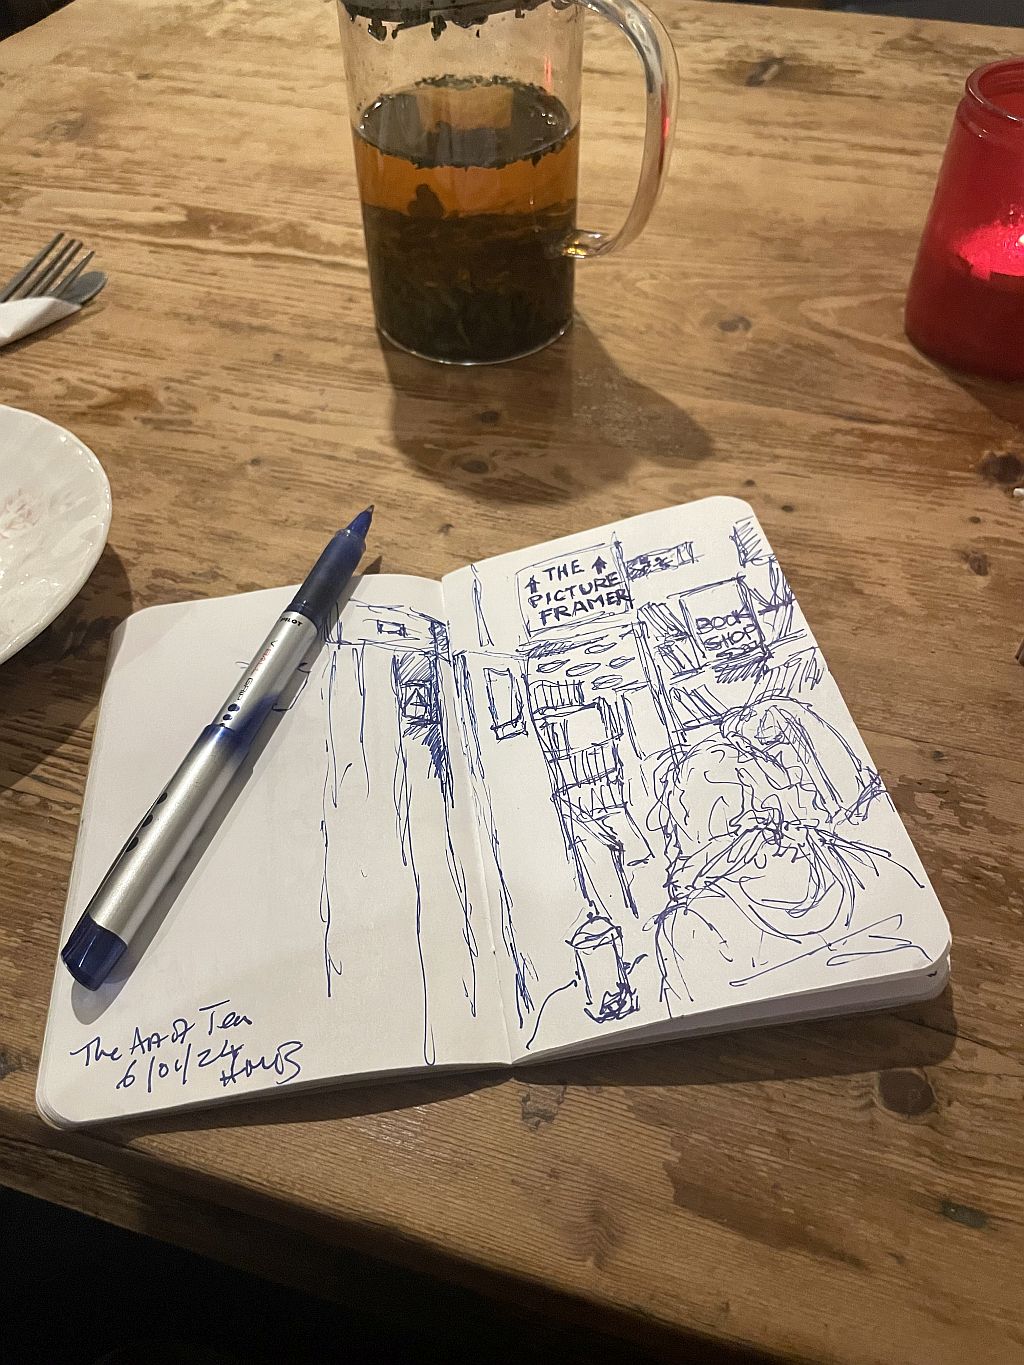 THE
PICTURE
FRAMER
BOOK
SHOP
PILOT
The Art of Tea
6/01/24